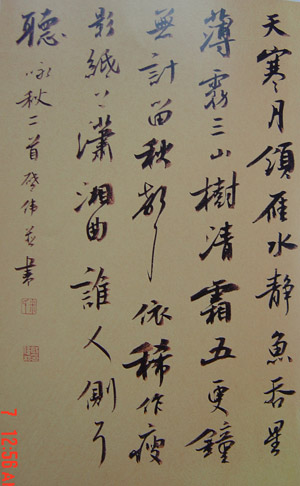 天寒月領雁水靜魚吞星
薄霧三山樹清霜五更鐘
無計留秋依稀作瘦
影紙上瀟湘曲誰人側耳
聽
咏秋二首偉並書
7 12:56 A